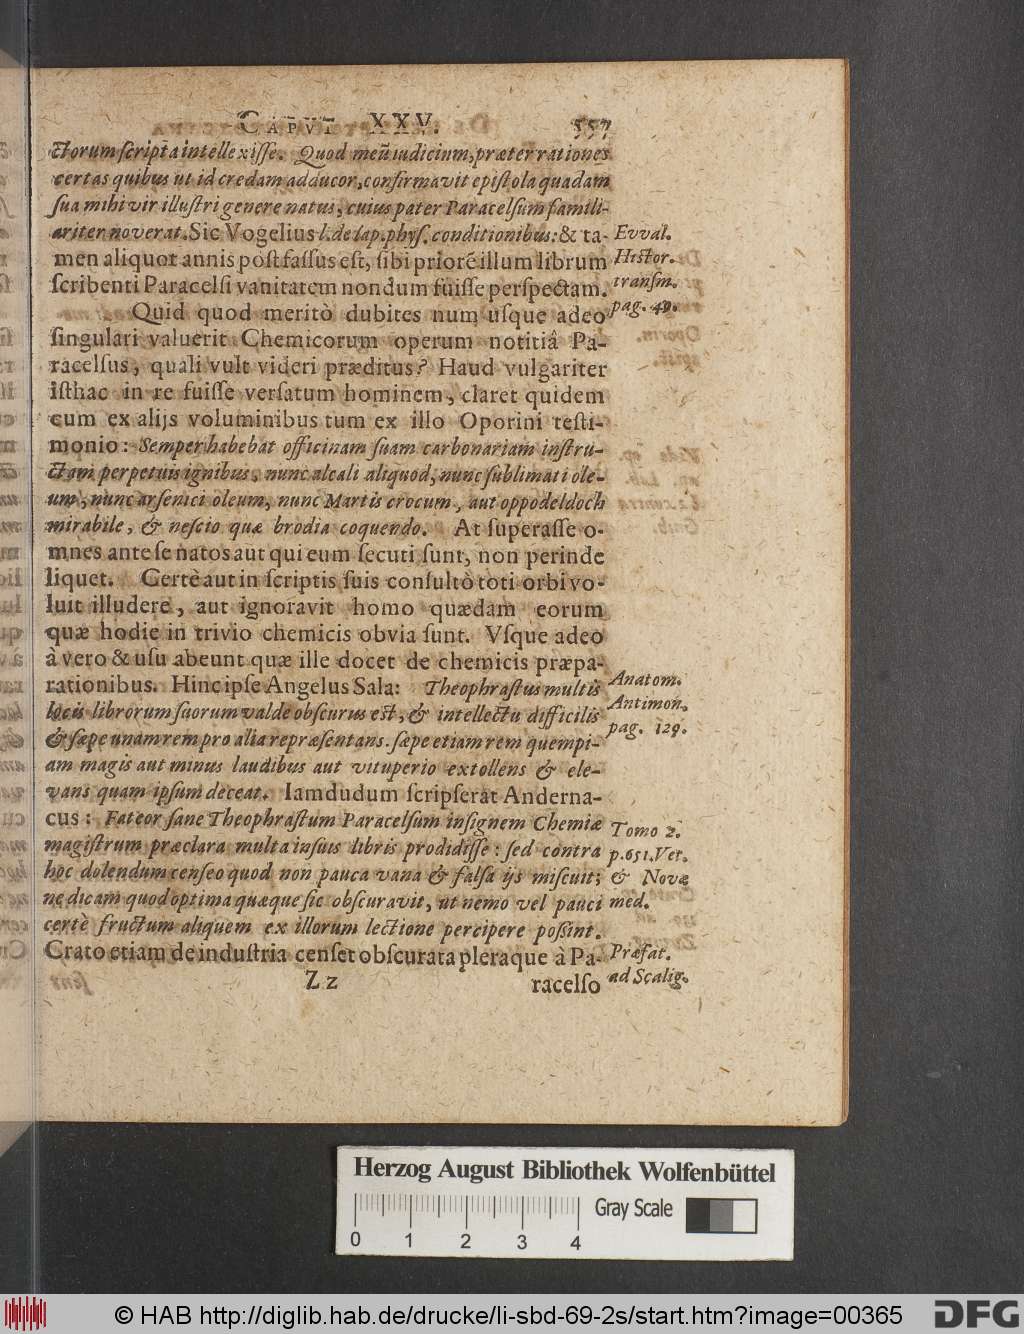 CAPVT XXV. 557
ctorum scripta intellexisse. Quod meũ iudicium, præter rationes
certas quibus ut id credam adducor, confirmavit epistola quadam
sua mihi vir illustri genere natus, cuius pater Paracelsum famili-
ariter noverat. Sic Vogelius l. de lap. phys. conditionibus: & ta-
Evval.
men aliquot annis post fassus est, sibi priorē illum librum
Histor.
scribenti Paracelsi vanitatem nondum fuisse perspectam.
transm.
pag. 49.
Quid quod meritò dubites num usque adeo
singulari valuerit Chemicorum operum notitiâ Pa-
racelsus, quali vult videri præditus? Haud vulgariter
isthac in re fuisse versatum hominem, claret quidem
cum ex alijs voluminibus tum ex illo Oporini testi-
monio: Semper habebat officinam suam carbonariam instru-
ctam perpetuis ignibus, nunc alcali aliquod, nunc sublimati ole-
um, nunc arsenici oleum, nunc Martis crocum, aut oppodeldoch
mirabile, & nescio quæ brodia coquendo. At superasse o-
mnes ante se natos aut qui eum secuti sunt, non perinde
liquet. Certè aut in scriptis suis consultò toti orbi vo-
luit illudere, aut ignoravit homo quædam eorum
quæ hodie in trivio chemicis obvia sunt. Vsque adeo
à vero & usu abeunt quæ ille docet de chemicis præpa-
rationibus. Hinc ipse Angelus Sala: Theophrastus multis
Anatom.
locis librorum suorum valde obscurus est, & intellectu difficilis
Antimon.
& sæpe unam rem pro alia repræsentans. sæpe etiam rem quempi-
pag. 129.
am magis aut minus laudibus aut vituperio extollens & ele-
vans quam ipsum deceat. Iamdudum scripserat Anderna-
cus: Fateor sane Theophrastum Paracelsum insignem Chemiæ
Tomo 2.
magistrum præclara multa in suis libris prodidisse: sed contra
p. 651. Vet.
hoc dolendum censeo quod non pauca vana & falsa ijs miscuit;
& Novæ
ne dicam quod optima quæque sic obscuravit, ut nemo vel pauci
med.
certè fructum aliquem ex illorum lectione percipere possint.
Crato etiam de industria censet obscurata pleraque à Pa-
Præfat.
ad Scalig.
Zz racelso
Herzog August Bibliothek Wolfenbüttel
Gray Scale
0 1 2 3 4
© HAB http://diglib.hab.de/drucke/li-sbd-69-2s/start.htm?image=00365
DFG